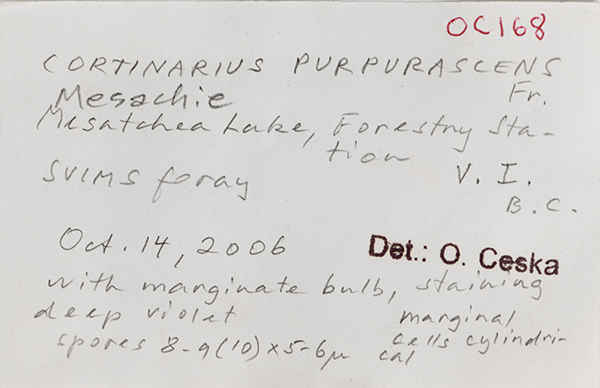 OC168
CORTINARIUS PURPURASCENS
Fr.
Mesachie
Mesatchea Lake, Forestry Sta-
tion
SVIMS foray
V. I.
B.C.
Oct. 14, 2006
Det.: O. Ceska
with marginate bulb, staining
deep violet
marginal
spores 8-9(10)x5-6µ
cells cylindri-
cal